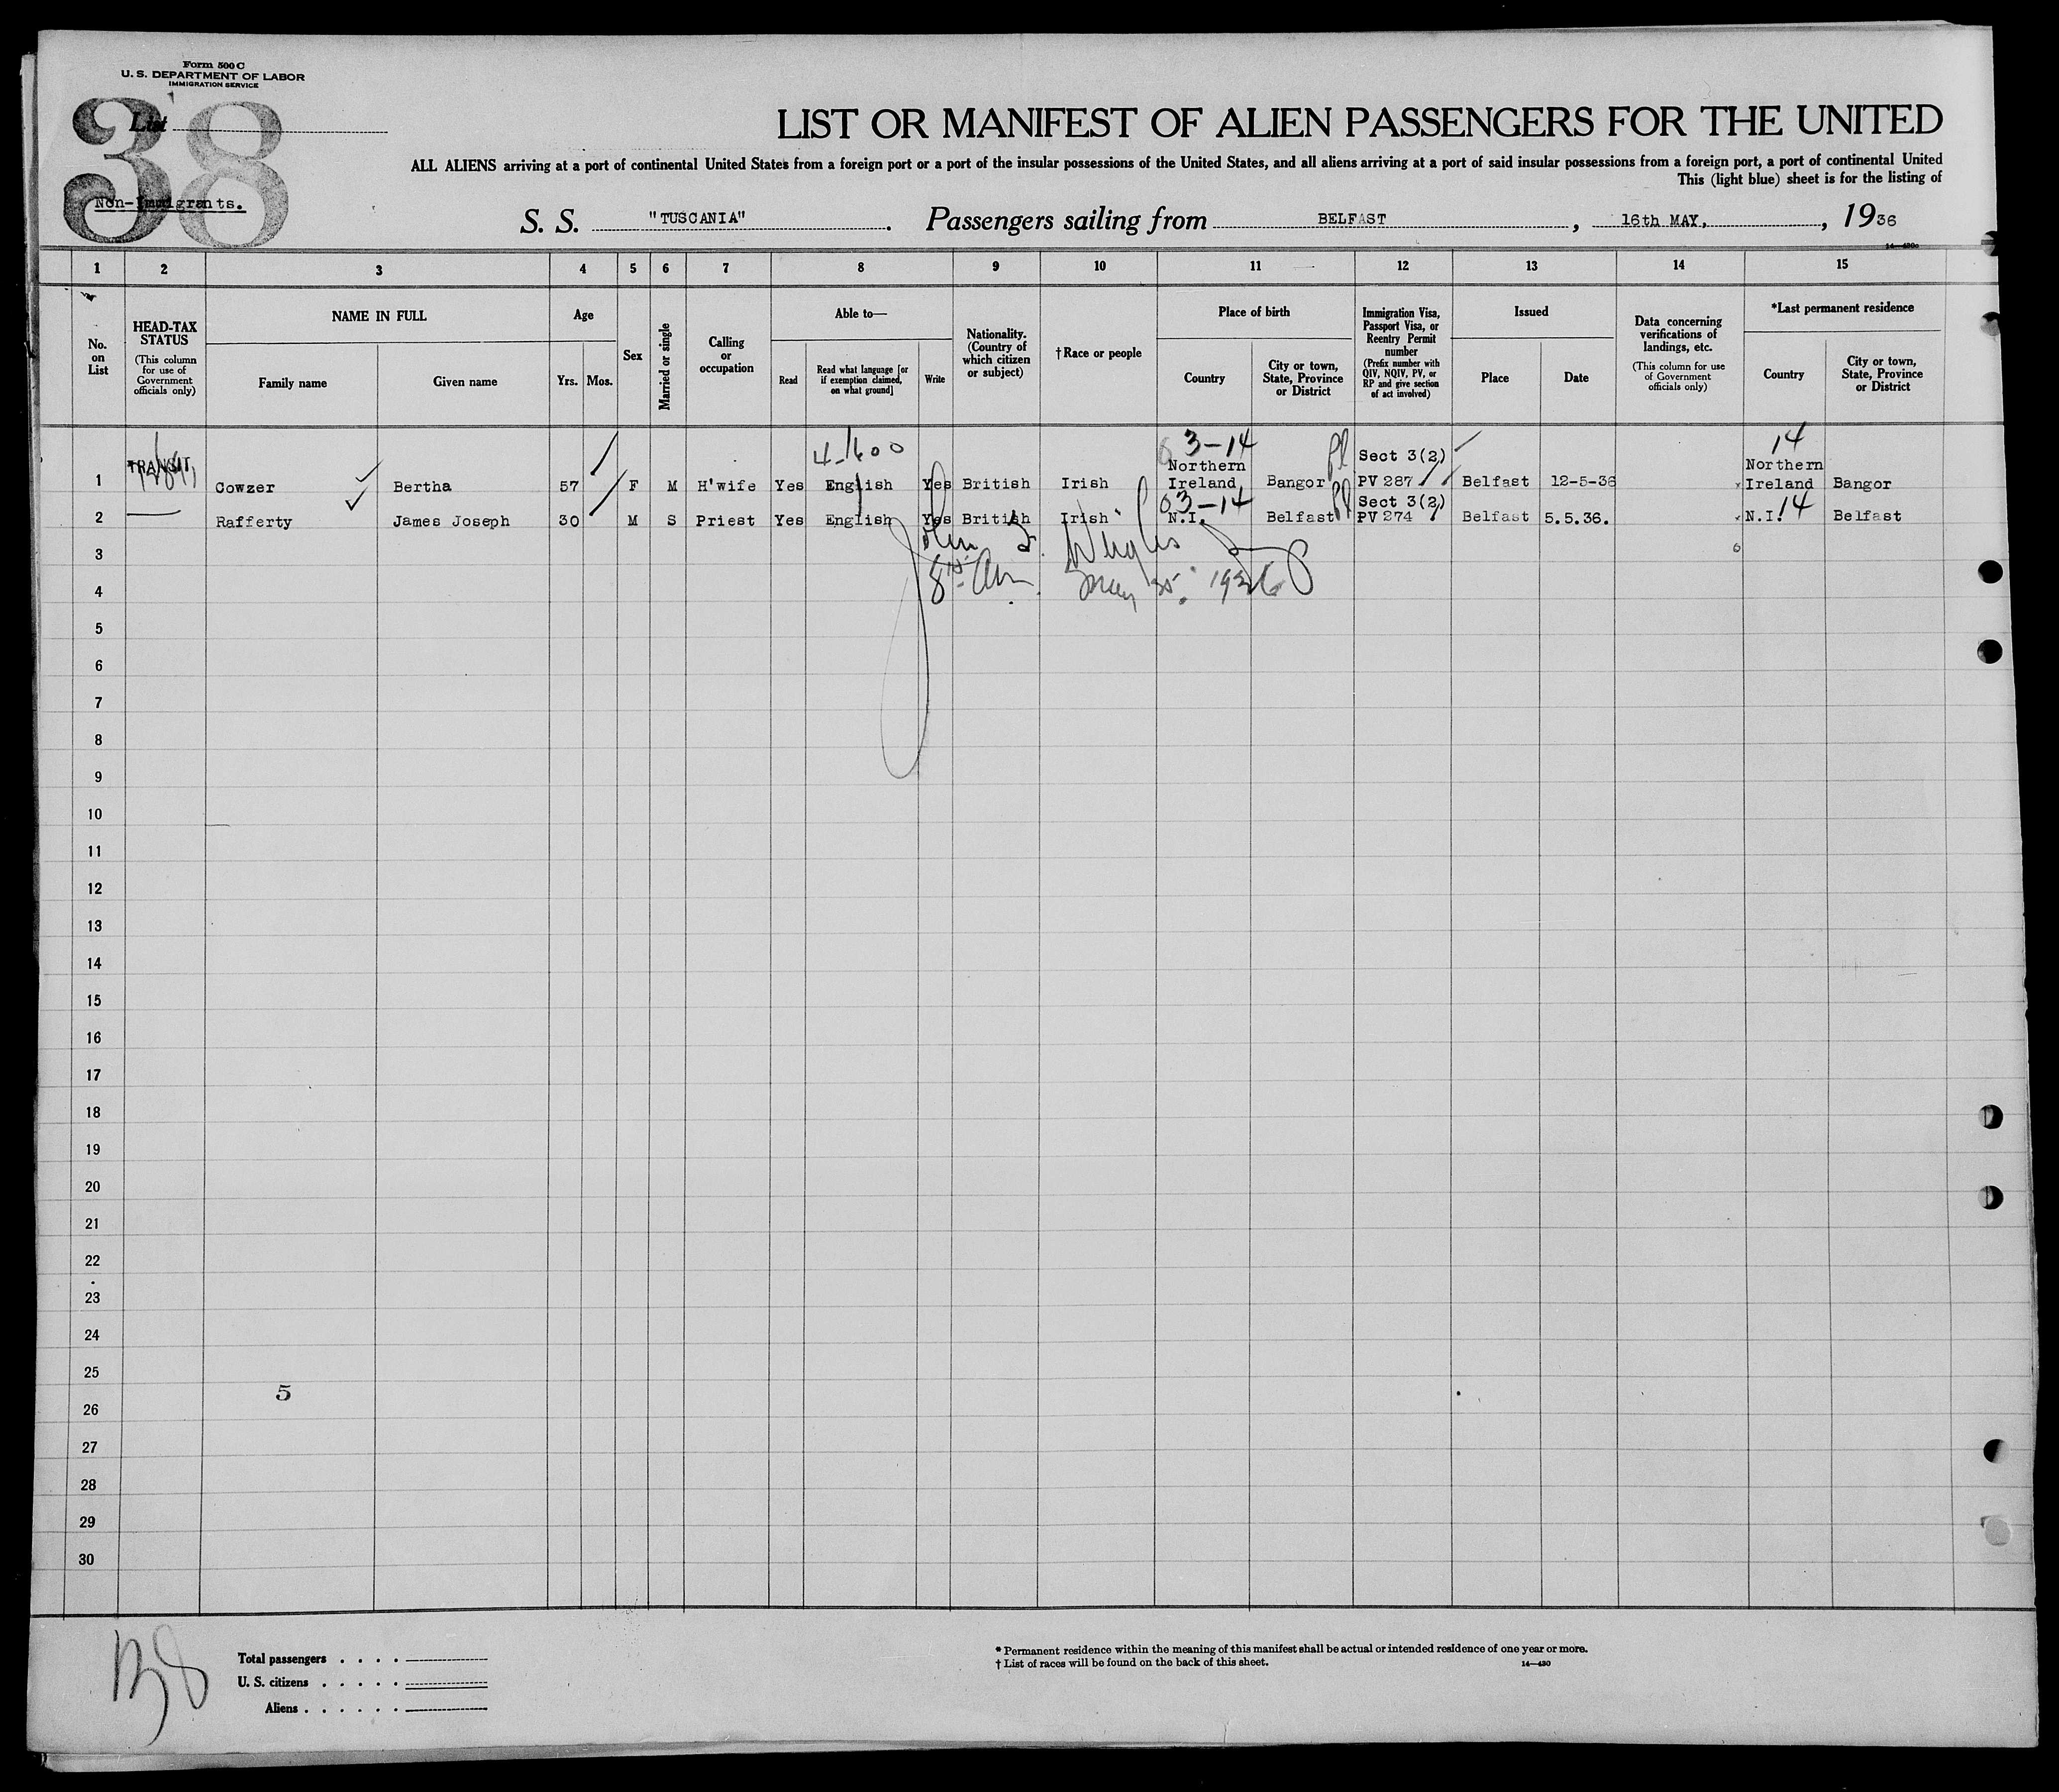 Form 500 C
U. S. DEPARTMENT OF LABOR
IMMIGRATION SERVICE
38
List
Non-Immigrants.
LIST OR MANIFEST OF ALIEN PASSENGERS FOR THE UNITED
ALL ALIENS arriving at a port of continental United States from a foreign port or a port of the insular possessions of the United States, and all aliens arriving at a port of said insular possessions from a foreign port, a port of continental United
This (light blue) sheet is for the listing of
S. S. "TUSCANIA". Passengers sailing from BELFAST, 16th MAY, , 1936
14—430c
1 2 3 4 5 6 7 8 9 10 11 12 13 14 15
No. on List
HEAD-TAX STATUS
(This column for use of Government officials only)
NAME IN FULL
Family name
Given name
Age
Yrs. Mos.
Sex
Married or single
Calling or occupation
Able to—
Read
Read what language [or if exemption claimed, on what ground]
Write
Nationality. (Country of which citizen or subject)
†Race or people
Place of birth
Country
City or town, State, Province or District
Immigration Visa, Passport Visa, or Reentry Permit number
(Prefix number with QIV, NQIV, PV, or RP and give section of act involved)
Issued
Place
Date
Data concerning verifications of landings, etc.
(This column for use of Government officials only)
*Last permanent residence
Country
City or town, State, Province or District
4-1600 3-14 14
TRANSIT Sect 3(2)
Northern Northern
1 Cowzer Bertha 57 F M H'wife Yes English Yes British Irish Ireland Bangor PV 287 Belfast 12-5-36 Ireland Bangor
03-14 Sect 3(2) 14
2 Rafferty James Joseph 30 M S Priest Yes English Yes British Irish N.I. Belfast PV 274 Belfast 5.5.36. N.I. Belfast
John
3
8th Ave May 25. 1936
4
5
6
7
8
9
10
11
12
13
14
15
16
17
18
19
20
21
22
23
24
25
5
26
27
28
29
30
Total passengers . . . .
U. S. citizens . . . . .
Aliens . . . . . .
* Permanent residence within the meaning of this manifest shall be actual or intended residence of one year or more.
† List of races will be found on the back of this sheet.
14—430